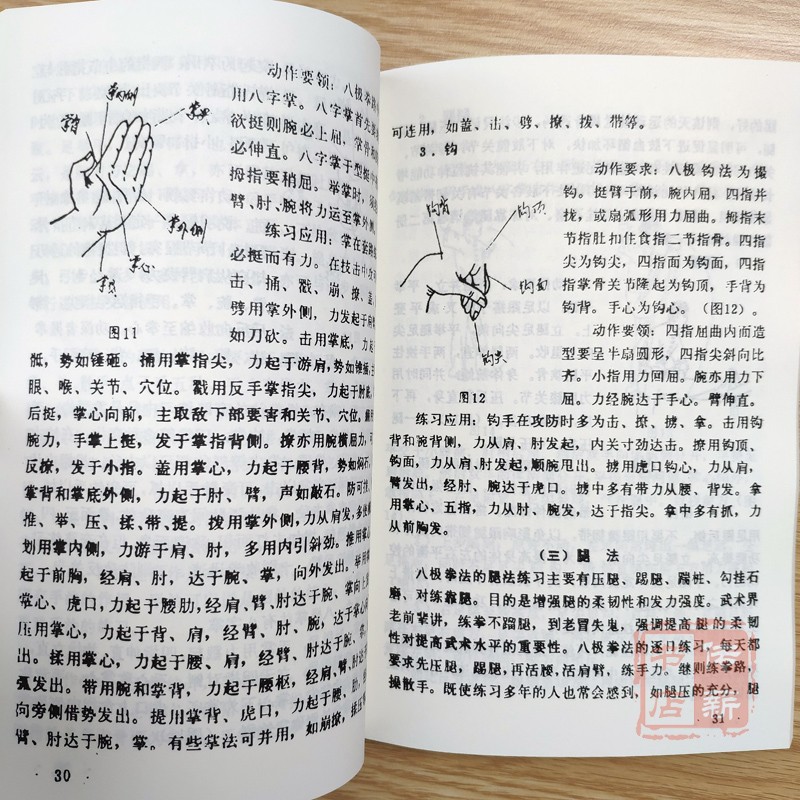 动作要领：八极拳路中
用八字掌。八字掌首先要
欲挺则腕必上屈，掌骨和
必伸直。八字掌干型挺中
拇指要稍屈。举掌时，须
臂、肘、腕将力运至掌外侧
练习应用：掌在套路练
必挺而有力，在技击中分
击、捅、戳、崩、撩、盖
劈用掌外侧，力发起于肩
如刀砍。击用掌底，力起
掌内侧
掌尖
掌背
掌外侧
掌心
掌根
图11
骶，势如锤砸。捅用掌指尖，力起于游肩，势如锤
眼、喉、关节、穴位。戳用反手掌指尖，力起于肘
后挺，掌心向前，主取敌下部要害和关节、穴位。崩
腕力，手掌上挺，发于掌指背侧。撩亦用腕横屈力，可
反撩，发于小指。盖用掌心，力起于腰背，势如焖石
掌背和掌底外侧，力起于肘、臂，声如敲石。防可推
推、举、压、揉、带、提。拨用掌外侧，力从肩发，多
划用掌内侧，力游于肩、肘，多用内引斜劲。推用掌
起于前胸，经肩、肘，达于腕、掌，向外发出。举用
掌心、虎口，力起于腰肋，经肩、臂、肘达于腕、掌向上
压用掌心，力起于背、肩，经臂、肘、腕，达于掌
出。揉用掌心，力起于腰、肩，经臂、肘达于腕
弧发出。带用腕和掌背，力起于腰枢，经肩、臂、肘达于
向旁侧借势发出。提用掌背、虎口，力起于腰、肋，
臂、肘达于腕，掌。有些掌法可并用，如崩撩，挂压
· 30 ·
可连用，如盖、击、劈、撩、拨、带等。
3．钩
动作要求：八极钩法为撮
钩。挺臂于前，腕内屈，四指并
拢，或扇弧形用力屈曲。拇指末
节指肚扣住食指二节指骨。四指
尖为钩尖，四指面为钩面，四指
指掌骨关节隆起为钩顶，手背为
钩背。手心为钩心。（图12）。
动作要领：四指屈曲内而造
型要呈半扇圆形，四指指尖斜向比
齐。小指用力回屈。腕亦用力下
屈。力经腕达于手心。臂伸直。
钩背
钩顶
钩面
钩尖
图12
练习应用：钩手在攻防时多为击、撩、掳、拿。击用钩
背和腕背侧，力从肩、肘发起，内关寸劲达击。撩用钩顶、
钩面，力从肩、肘发起，顺腕甩出。掳用虎口钩心，力从肩，
臂发出，经肘、腕达于虎口。掳中多有带力从腰、背发。拿
用掌心、五指，力从肘、腕发，达于指尖。拿中多有抓，力
从前胸发。
（三）腿 法
八极拳法的腿法练习主要有压腿、踢腿、踹桩、勾挂石
磨、对练靠腿。目的是增强腿的柔韧性和发力强度。武术界
老前辈讲，练拳不蹓腿，到老冒失鬼，强调提高腿的柔韧
性对提高武术水平的重要性。八极拳法的逐日练习，每天都
要求先压腿，踢腿，再活腰，活肩臂，练手力。继则练拳路，
操散手。既使练习多年的人也常会感到，如腿压的充分，腿
· 31 ·